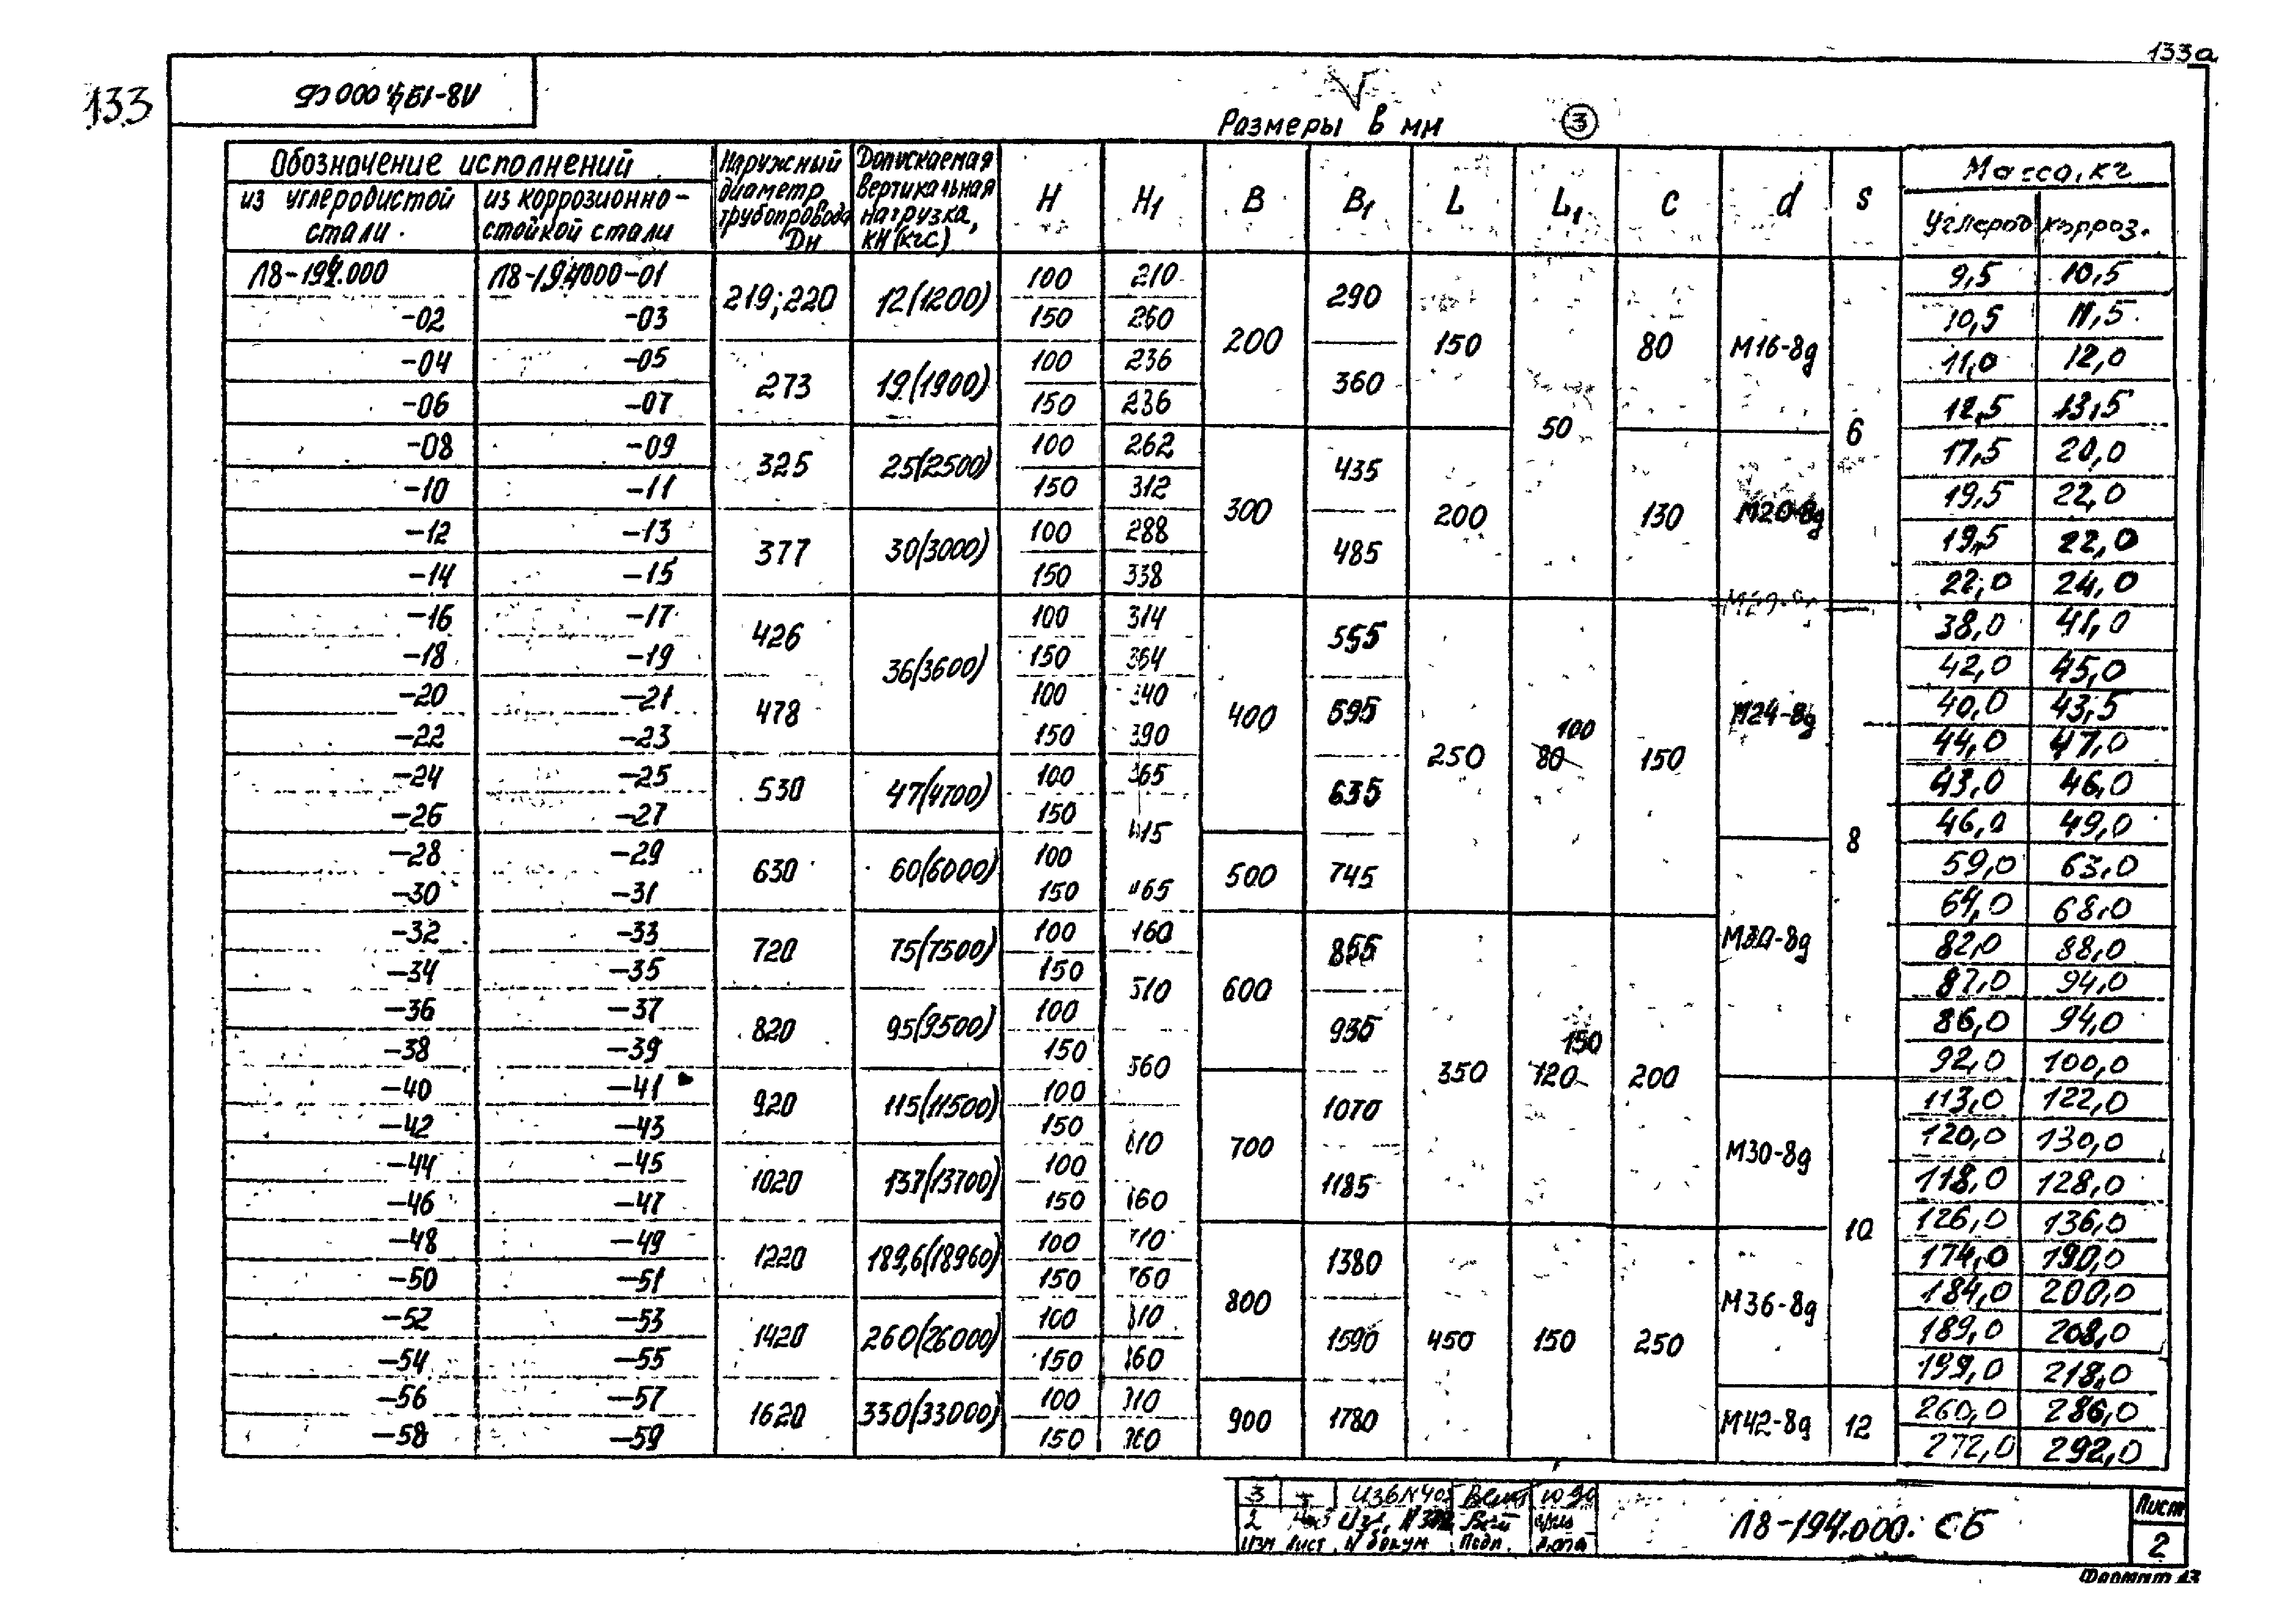 133а
133
Л8-194.000 СБ
Размеры в мм
3
Обозначение исполнений
из углеродистой стали
из коррозионно-стойкой стали
Наружный диаметр трубопровода Dн
Допускаемая вертикальная нагрузка, кН(кгс)
H H1 B B1 L L1 c d s
Масса, кг
Углерод корроз.
Л8-194.000 Л8-194000-01 219;220 12(1200) 100 210 200 290 150 50 80 М16-8g 6 9,5 10,5
-02 -03 150 260 10,5 11,5
-04 -05 273 19(1900) 100 236 360 11,0 12,0
-06 -07 150 236 12,5 13,5
-08 -09 325 25(2500) 100 262 300 435 200 130 М20-8g 17,5 20,0
-10 -11 150 312 19,5 22,0
-12 -13 377 30(3000) 100 288 485 19,5 22,0
-14 -15 150 338 22,0 24,0
-16 -17 426 36(3600) 100 314 400 555 250 100 80 150 М24-8g 8 38,0 41,0
-18 -19 150 364 42,0 45,0
-20 -21 478 100 340 595 40,0 43,5
-22 -23 150 390 44,0 47,0
-24 -25 530 47(4700) 100 365 635 43,0 46,0
-26 -27 150 415 46,0 49,0
-28 -29 630 60(6000) 100 500 745 М30-8g 59,0 63,0
-30 -31 150 465 64,0 68,0
-32 -33 720 75(7500) 100 160 600 855 350 150 120 200 82,0 88,0
-34 -35 150 510 87,0 94,0
-36 -37 820 95(9500) 100 935 86,0 94,0
-38 -39 150 560 92,0 100,0
-40 -41 920 115(11500) 100 700 1070 М30-8g 10 113,0 122,0
-42 -43 150 610 120,0 130,0
-44 -45 1020 137(13700) 100 1185 118,0 128,0
-46 -47 150 660 126,0 136,0
-48 -49 1220 189,6(18960) 100 710 800 1380 450 150 250 М36-8g 174,0 190,0
-50 -51 150 760 184,0 200,0
-52 -53 1420 260(26000) 100 810 1590 189,0 208,0
-54 -55 150 860 199,0 218,0
-56 -57 1620 330(33000) 100 910 900 1780 М42-8g 12 260,0 286,0
-58 -59 150 960 272,0 292,0
3
2
Изм Лист N докум Подп. Дата
Л8-194.000. СБ
Лист
2
Формат А3